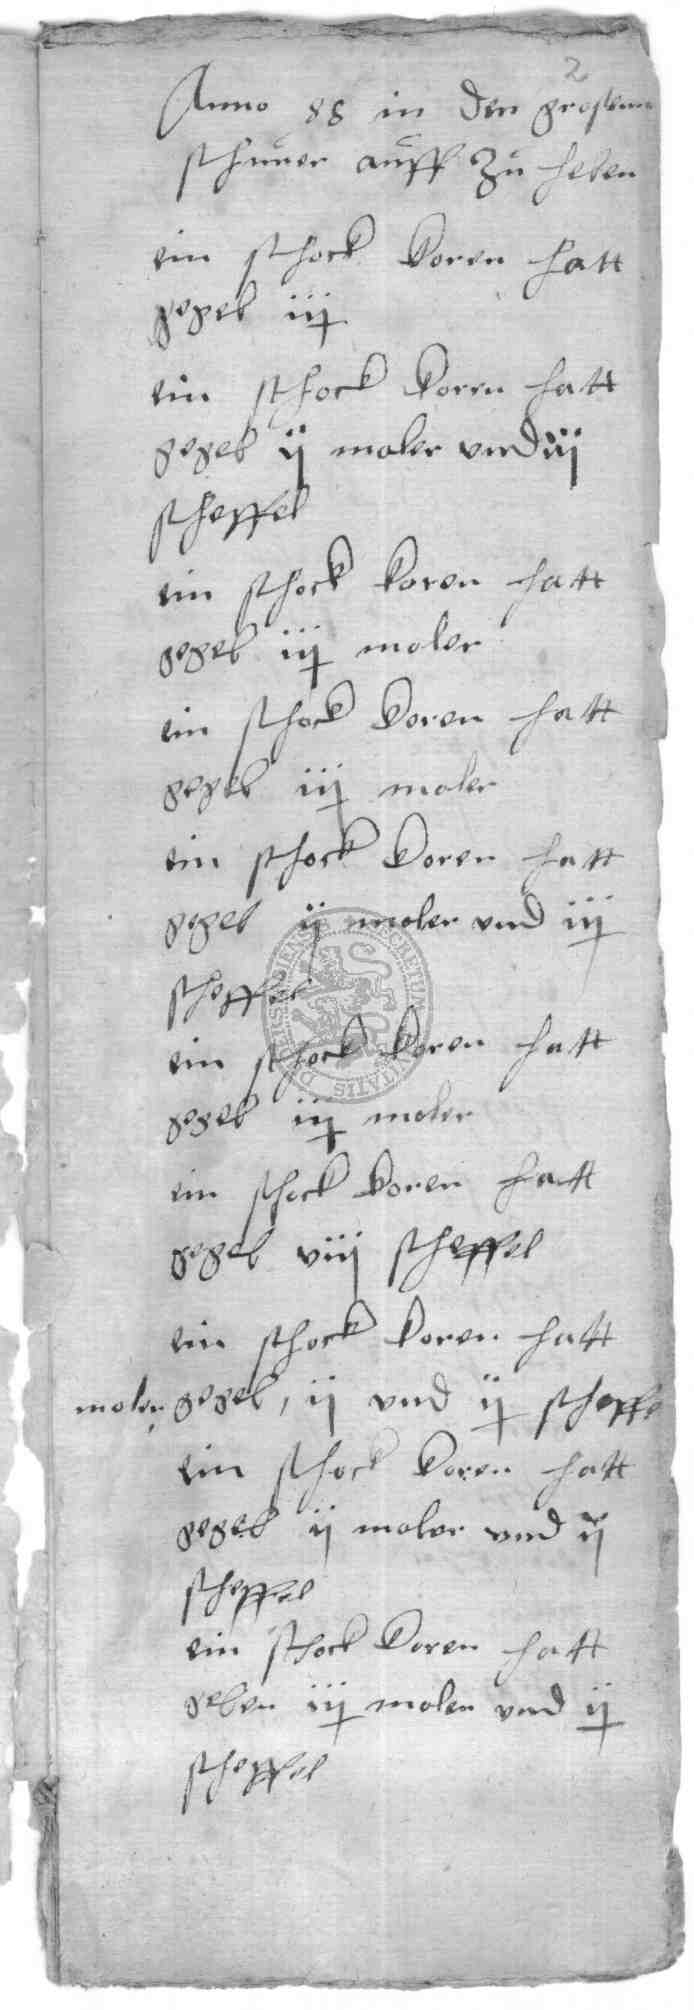 2
Anno 88 in der grossenn
schuer auff zu heben
ein schock koren hatt
gegeb iij
ein schock koren hatt
gegeb ij moler vnd iij
scheffel
ein schock koren hatt
gegeb iij moler
ein schock koren hatt
gegeb iij moler
ein schock koren hatt
gegeb ij moler vnd iij
scheffel
ein schock koren hatt
gegeb iij moler
ein schock koren hatt
gegeb viij scheffel
ein schock koren hatt
moler gegeb, ij vnd ij scheffe
ein schock koren hatt
gegeb ij moler vnd ij
scheffel
ein schock koren hatt
geben iij moler vnd ij
scheffel